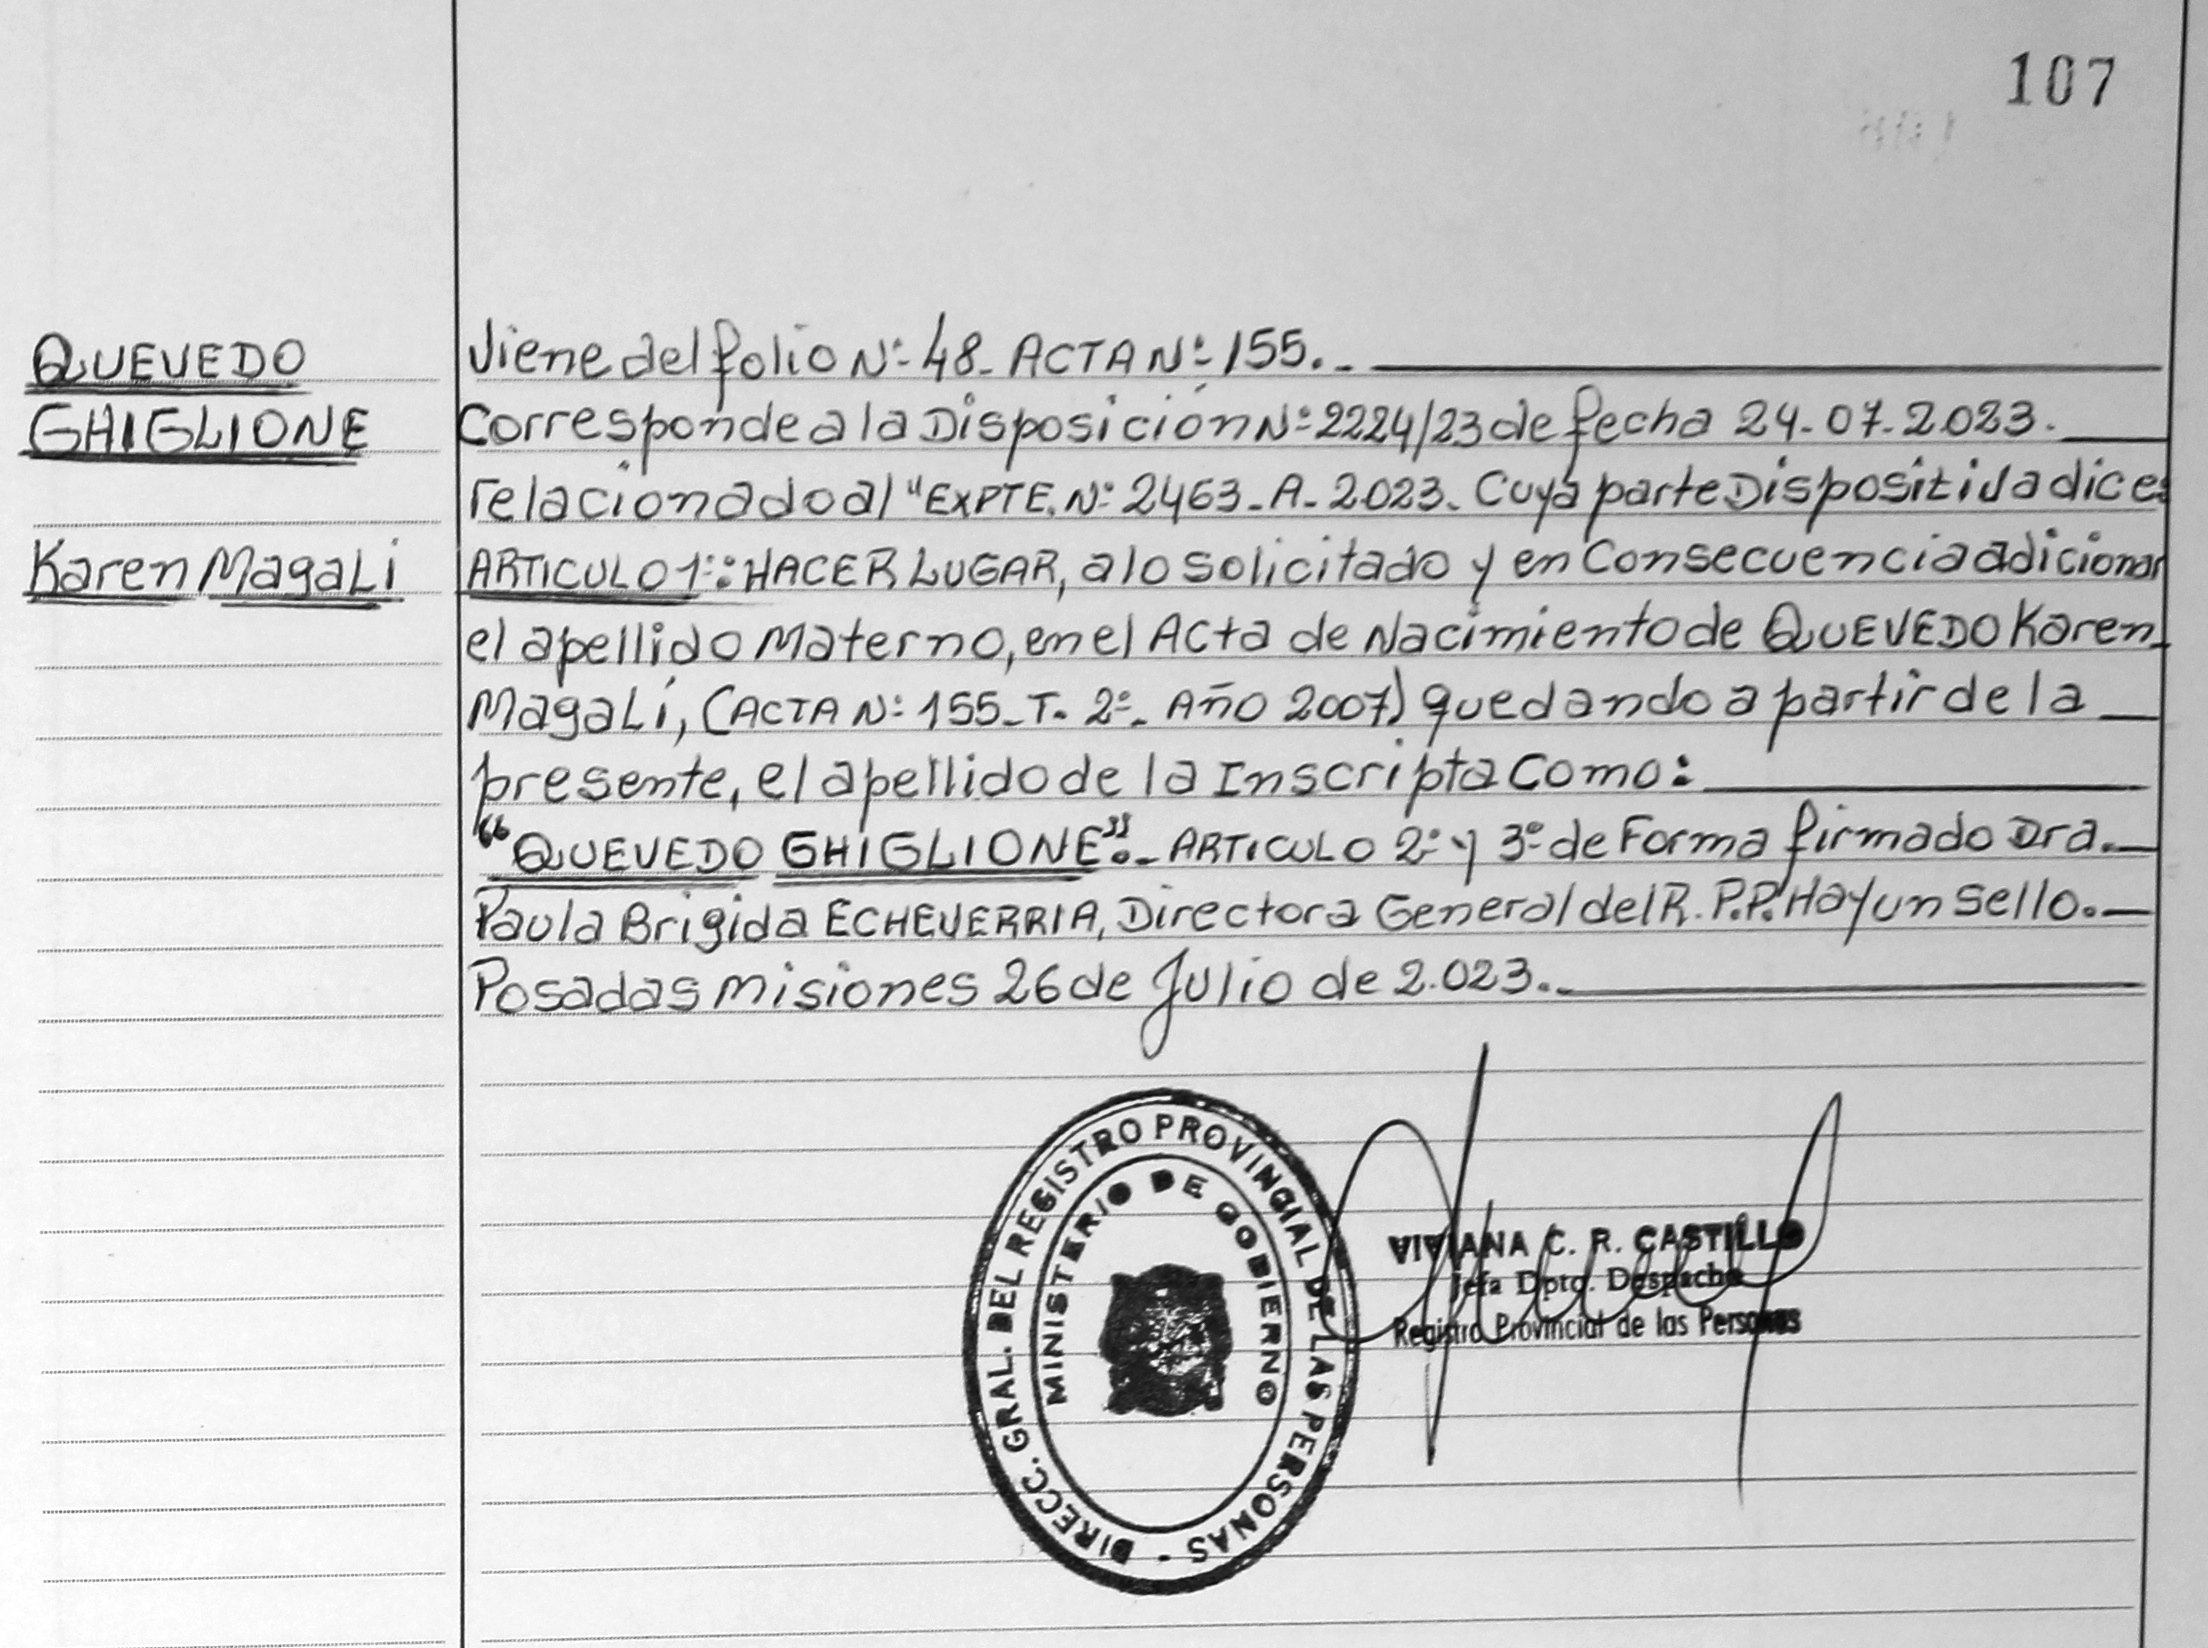 107
QUEVEDO
GHIGLIONE
Karen Magali
Viene del folio Nº 48_ ACTA Nº 155._
Corresponde a la Disposición Nº 2224/23 de fecha 24-07-2023.
relacionado al "EXPTE. Nº 2463_A_2023_ Cuya parte Dispositiva dice:
ARTICULO 1º: HACER LUGAR, a lo solicitado y en Consecuencia adicionar
el apellido Materno, en el Acta de Nacimiento de QUEVEDO Karen
Magalí, (ACTA Nº 155_T. 2º_ Año 2007) quedando a partir de la
presente, el apellido de la Inscripta Como:
"QUEVEDO GHIGLIONE"._ ARTICULO 2º y 3º de Forma firmado Dra.
Paula Brigida ECHEVERRIA, Directora General del R.P.P. Hay un Sello.
Posadas Misiones 26 de Julio de 2.023._
DIRECC. GRAL. DEL REGISTRO PROVINCIAL DE LAS PERSONAS -
MINISTERIO DE GOBIERNO
VIVIANA C. R. CASTILLO
Jefa Dpto. Despacho
Registro Provincial de las Personas